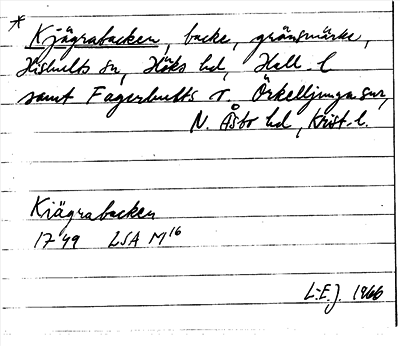 * Kjägrabacken, backe, gränsmärke,
Hishults sn, Höks hd, Hall. l
samt Fagerhults o. Örkelljunga snr,
N. Åsbo hd, Krist. l.
Kiägrabacken
1749 LSA M16
L-E.J. 1966